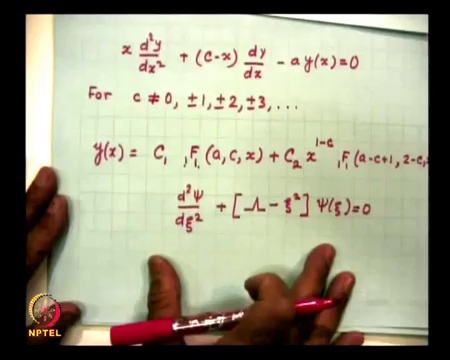 x d²y/dx² + (c-x) dy/dx - a y(x) = 0
For c ≠ 0, ±1, ±2, ±3, ...
y(x) = C₁ ₁F₁(a, c, x) + C₂ x^(1-c) ₁F₁(a-c+1, 2-c,
d²Ψ/dξ² + [Λ - ξ²] Ψ(ξ) = 0
NPTEL